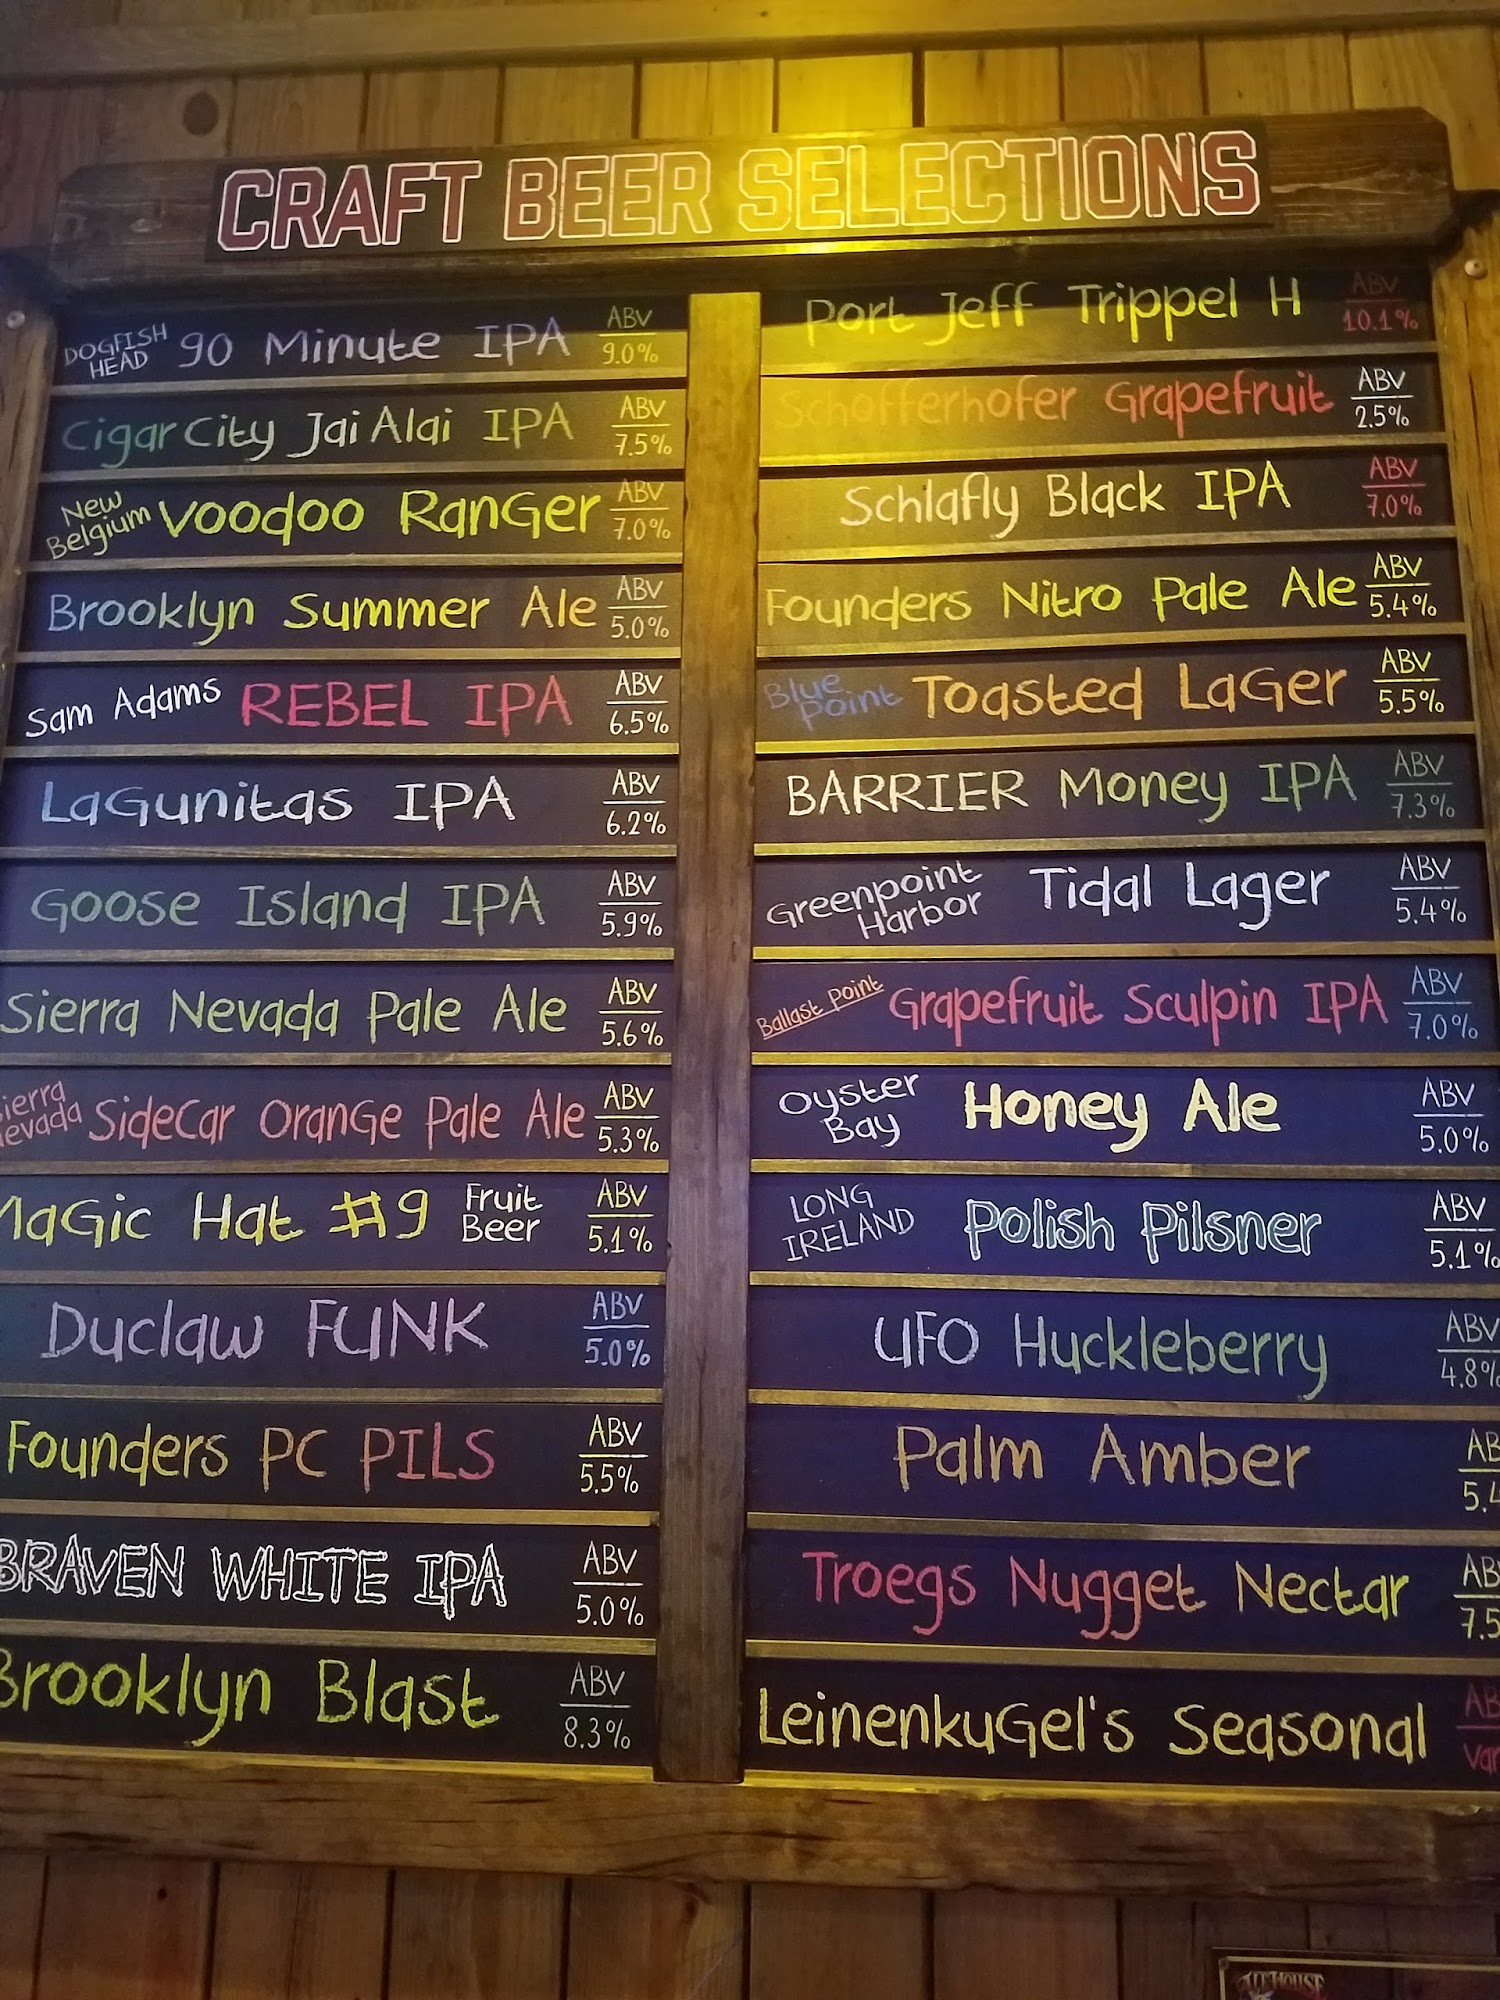 CRAFT BEER SELECTIONS
DOGFISH HEAD 90 Minute IPA ABV 9.0%
Cigar City Jai Alai IPA ABV 7.5%
New Belgium Voodoo Ranger ABV 7.0%
Brooklyn Summer Ale ABV 5.0%
Sam Adams REBEL IPA ABV 6.5%
Lagunitas IPA ABV 6.2%
Goose Island IPA ABV 5.9%
Sierra Nevada Pale Ale ABV 5.6%
ierra evada Sidecar Orange Pale Ale ABV 5.3%
Magic Hat #9 Fruit Beer ABV 5.1%
Duclaw FUNK ABV 5.0%
Founders PC PILS ABV 5.5%
BRAVEN WHITE IPA ABV 5.0%
Brooklyn Blast ABV 8.3%
Port Jeff Trippel H ABV 10.1%
Schofferhofer Grapefruit ABV 2.5%
Schlafly Black IPA ABV 7.0%
Founders Nitro Pale Ale ABV 5.4%
Blue Point Toasted Lager ABV 5.5%
BARRIER Money IPA ABV 7.3%
Greenpoint Harbor Tidal Lager ABV 5.4%
Ballast Point Grapefruit Sculpin IPA ABV 7.0%
Oyster Bay Honey Ale ABV 5.0%
LONG IRELAND Polish Pilsner ABV 5.1%
UFO Huckleberry ABV 4.8%
Palm Amber AB 5.4
Troegs Nugget Nectar AB 7.5
Leinenkugel's Seasonal AB Var
ALEHOUSE